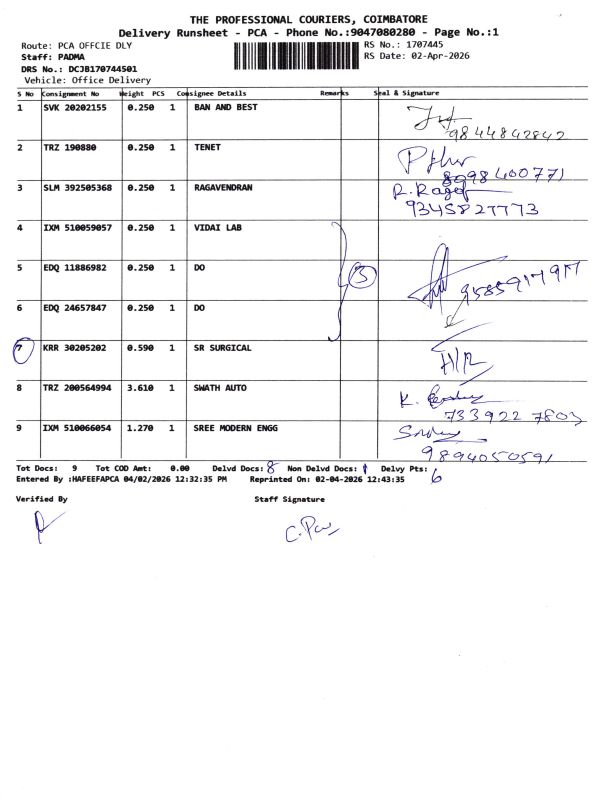 THE PROFESSIONAL COURIERS, COIMBATORE
Delivery Runsheet - PCA - Phone No.:9047080280 - Page No.:1
Route: PCA OFFCIE DLY RS No.: 1707445
Staff: PADMA RS Date: 02-Apr-2026
DRS No.: DCJB170744501
Vehicle: Office Delivery
S No Consignment No Weight PCS Consignee Details Remarks Seal & Signature
1 SVK 20202155 0.250 1 BAN AND BEST
9844842842
2 TRZ 190880 0.250 1 TENET
8098400771
3 SLM 392505368 0.250 1 RAGAVENDRAN R. Ragav
9345827773
4 IXM 510059057 0.250 1 VIDAI LAB
5 EDQ 11886982 0.250 1 DO 3 9585917917
6 EDQ 24657847 0.250 1 DO
7 KRR 30205202 0.590 1 SR SURGICAL H/R
8 TRZ 200564994 3.610 1 SWATH AUTO K.
733922 7803
9 IXM 510066054 1.270 1 SREE MODERN ENGG
9894050591
Tot Docs: 9 Tot COD Amt: 0.00 Delvd Docs: 8 Non Delvd Docs: 1 Delvy Pts: 6
Entered By :HAFEEFAPCA 04/02/2026 12:32:35 PM Reprinted On: 02-04-2026 12:43:35
Verified By Staff Signature